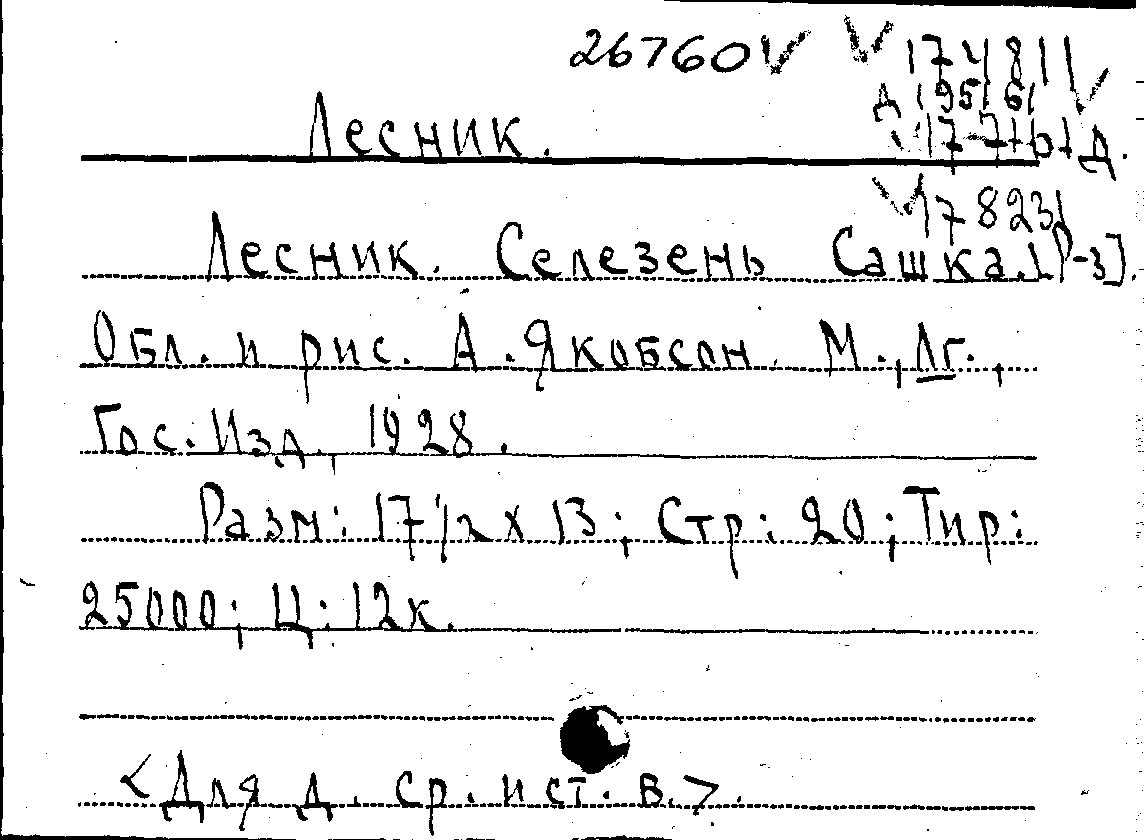 26760 V V 174811
Д 195161 V
Лесник. V 17-7161 Д.
V 178231
Лесник. Селезень Сашка. [Р-з].
Обл. и рис. А. Якобсон. М., Лг.,
Гос. Изд., 1928.
Разм: 17 1/2 х 13; Стр: 20; Тир:
25000; Ц: 12к.
<Для д. ср. и ст. в.>.